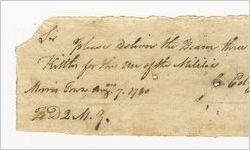 Sir please deliver the Bearer three
Kittles for the use of the Militia
Morris Town Augt. 7. 1780
Col
D Q M G.